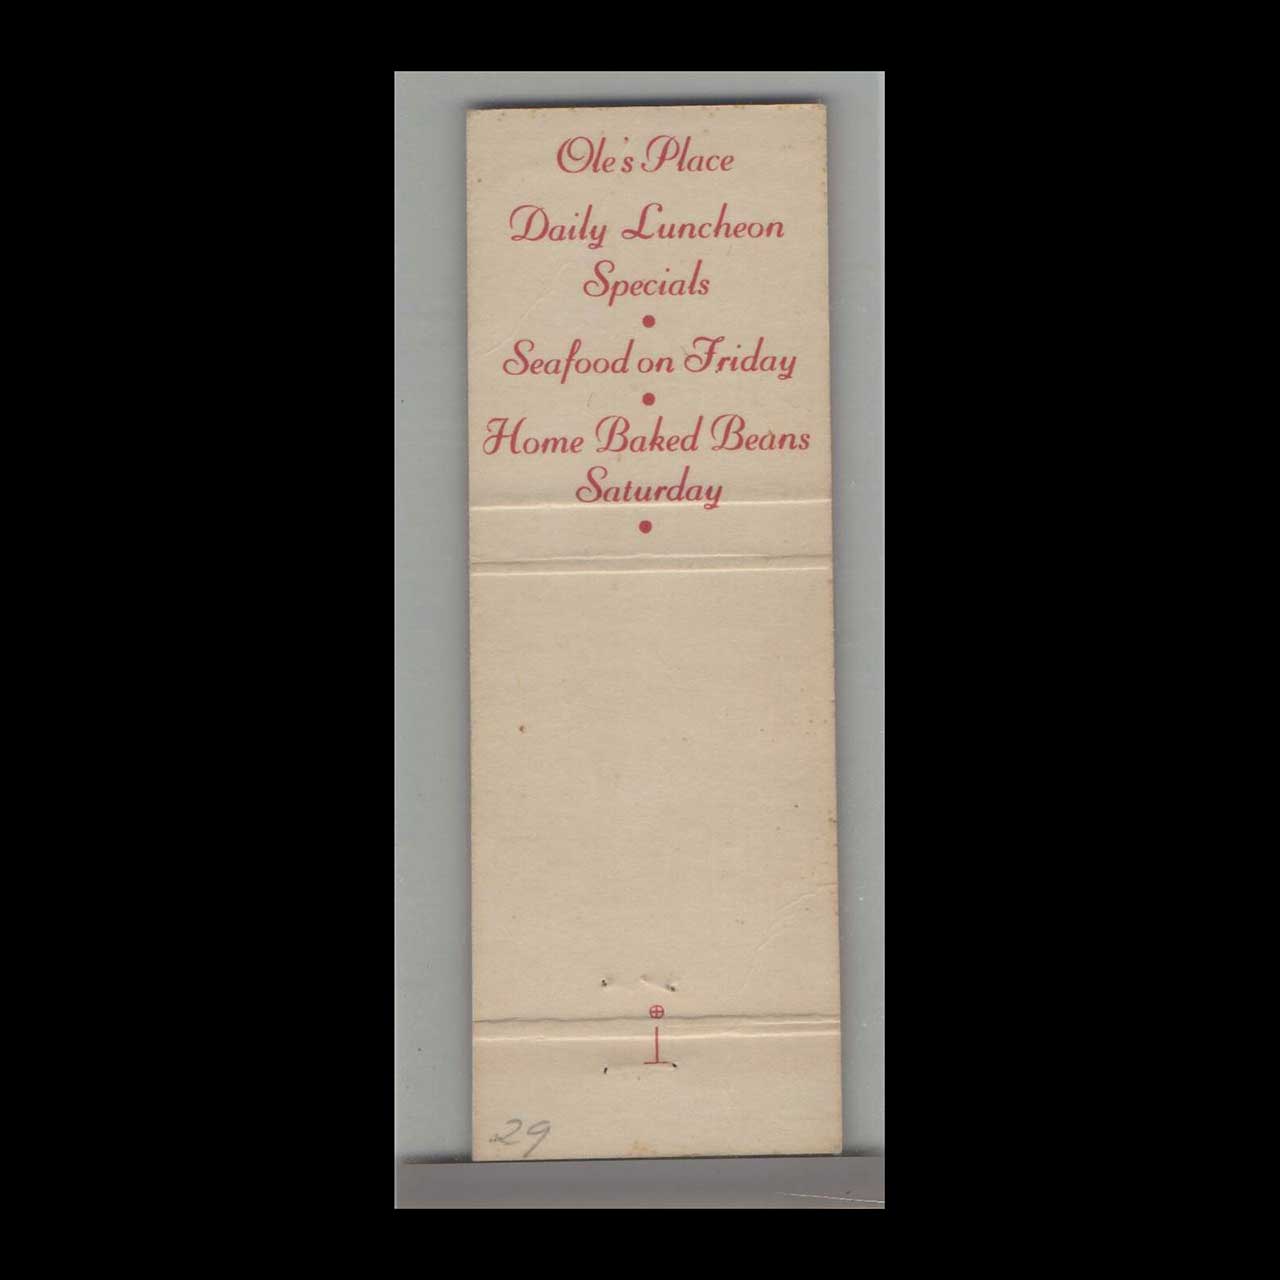 Ole's Place
Daily Luncheon
Specials
•
Seafood on Friday
•
Home Baked Beans
Saturday
•
29